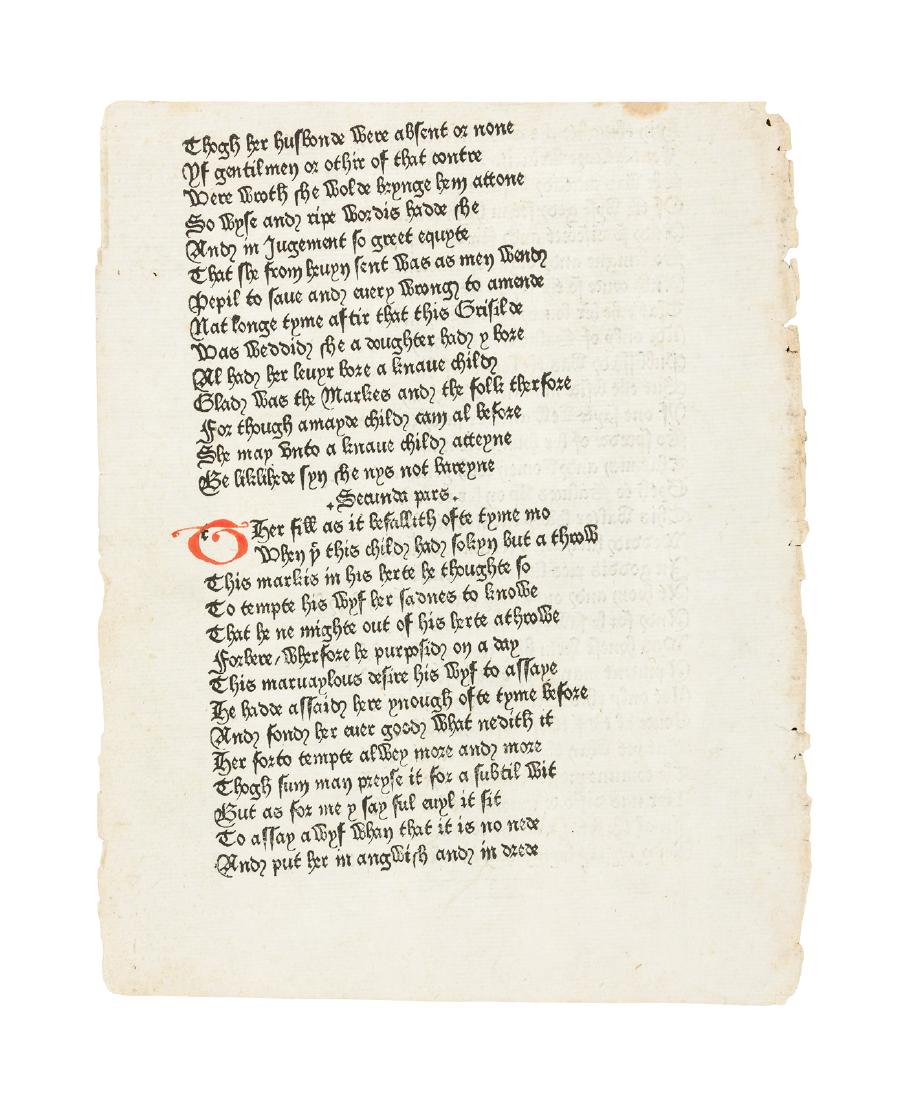 Thogh her husbonde were absent or none
Yf gentilmen or othir of that contre
Were wroth she wolde brynge hem attone
So wyse and ripe wordis hadde she
And in Jugement so greet equyte
That she from heuyn sent was as men wend
Pepil to saue and euery wrong to amende
Nat longe tyme aftir that this Grisilde
Was weddid she a doughter had y bore
Al had her leuyr bore a knaue child
Glad was the Markes and the folk therfore
For though amayde child cam al before
She may vnto a knaue child atteyne
Be liklihede syn she nys not bareyne
Secunda pars
THer fill as it befallith ofte tyme mo
When þͭ this child had sokyn but a throw
This markis in his herte he thoughte so
To tempte his wyf her sadnes to knowe
That he ne mighte out of his herte athrowe
Forbere/wherfore he purposid on a day
This maruaylous desire his wyf to assaye
He hadde assaid here ynough ofte tyme before
And fond her euer good what nedith it
Her forto tempte alwey more and more
Thogh sum man preyse it for a subtil wit
But as for me y say ful euyl it sit
To assay awyf whan that it is no nede
And put her in angwish and in drede